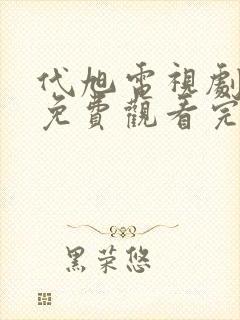 代旭電視劇
免費觀看完
黑荣悠